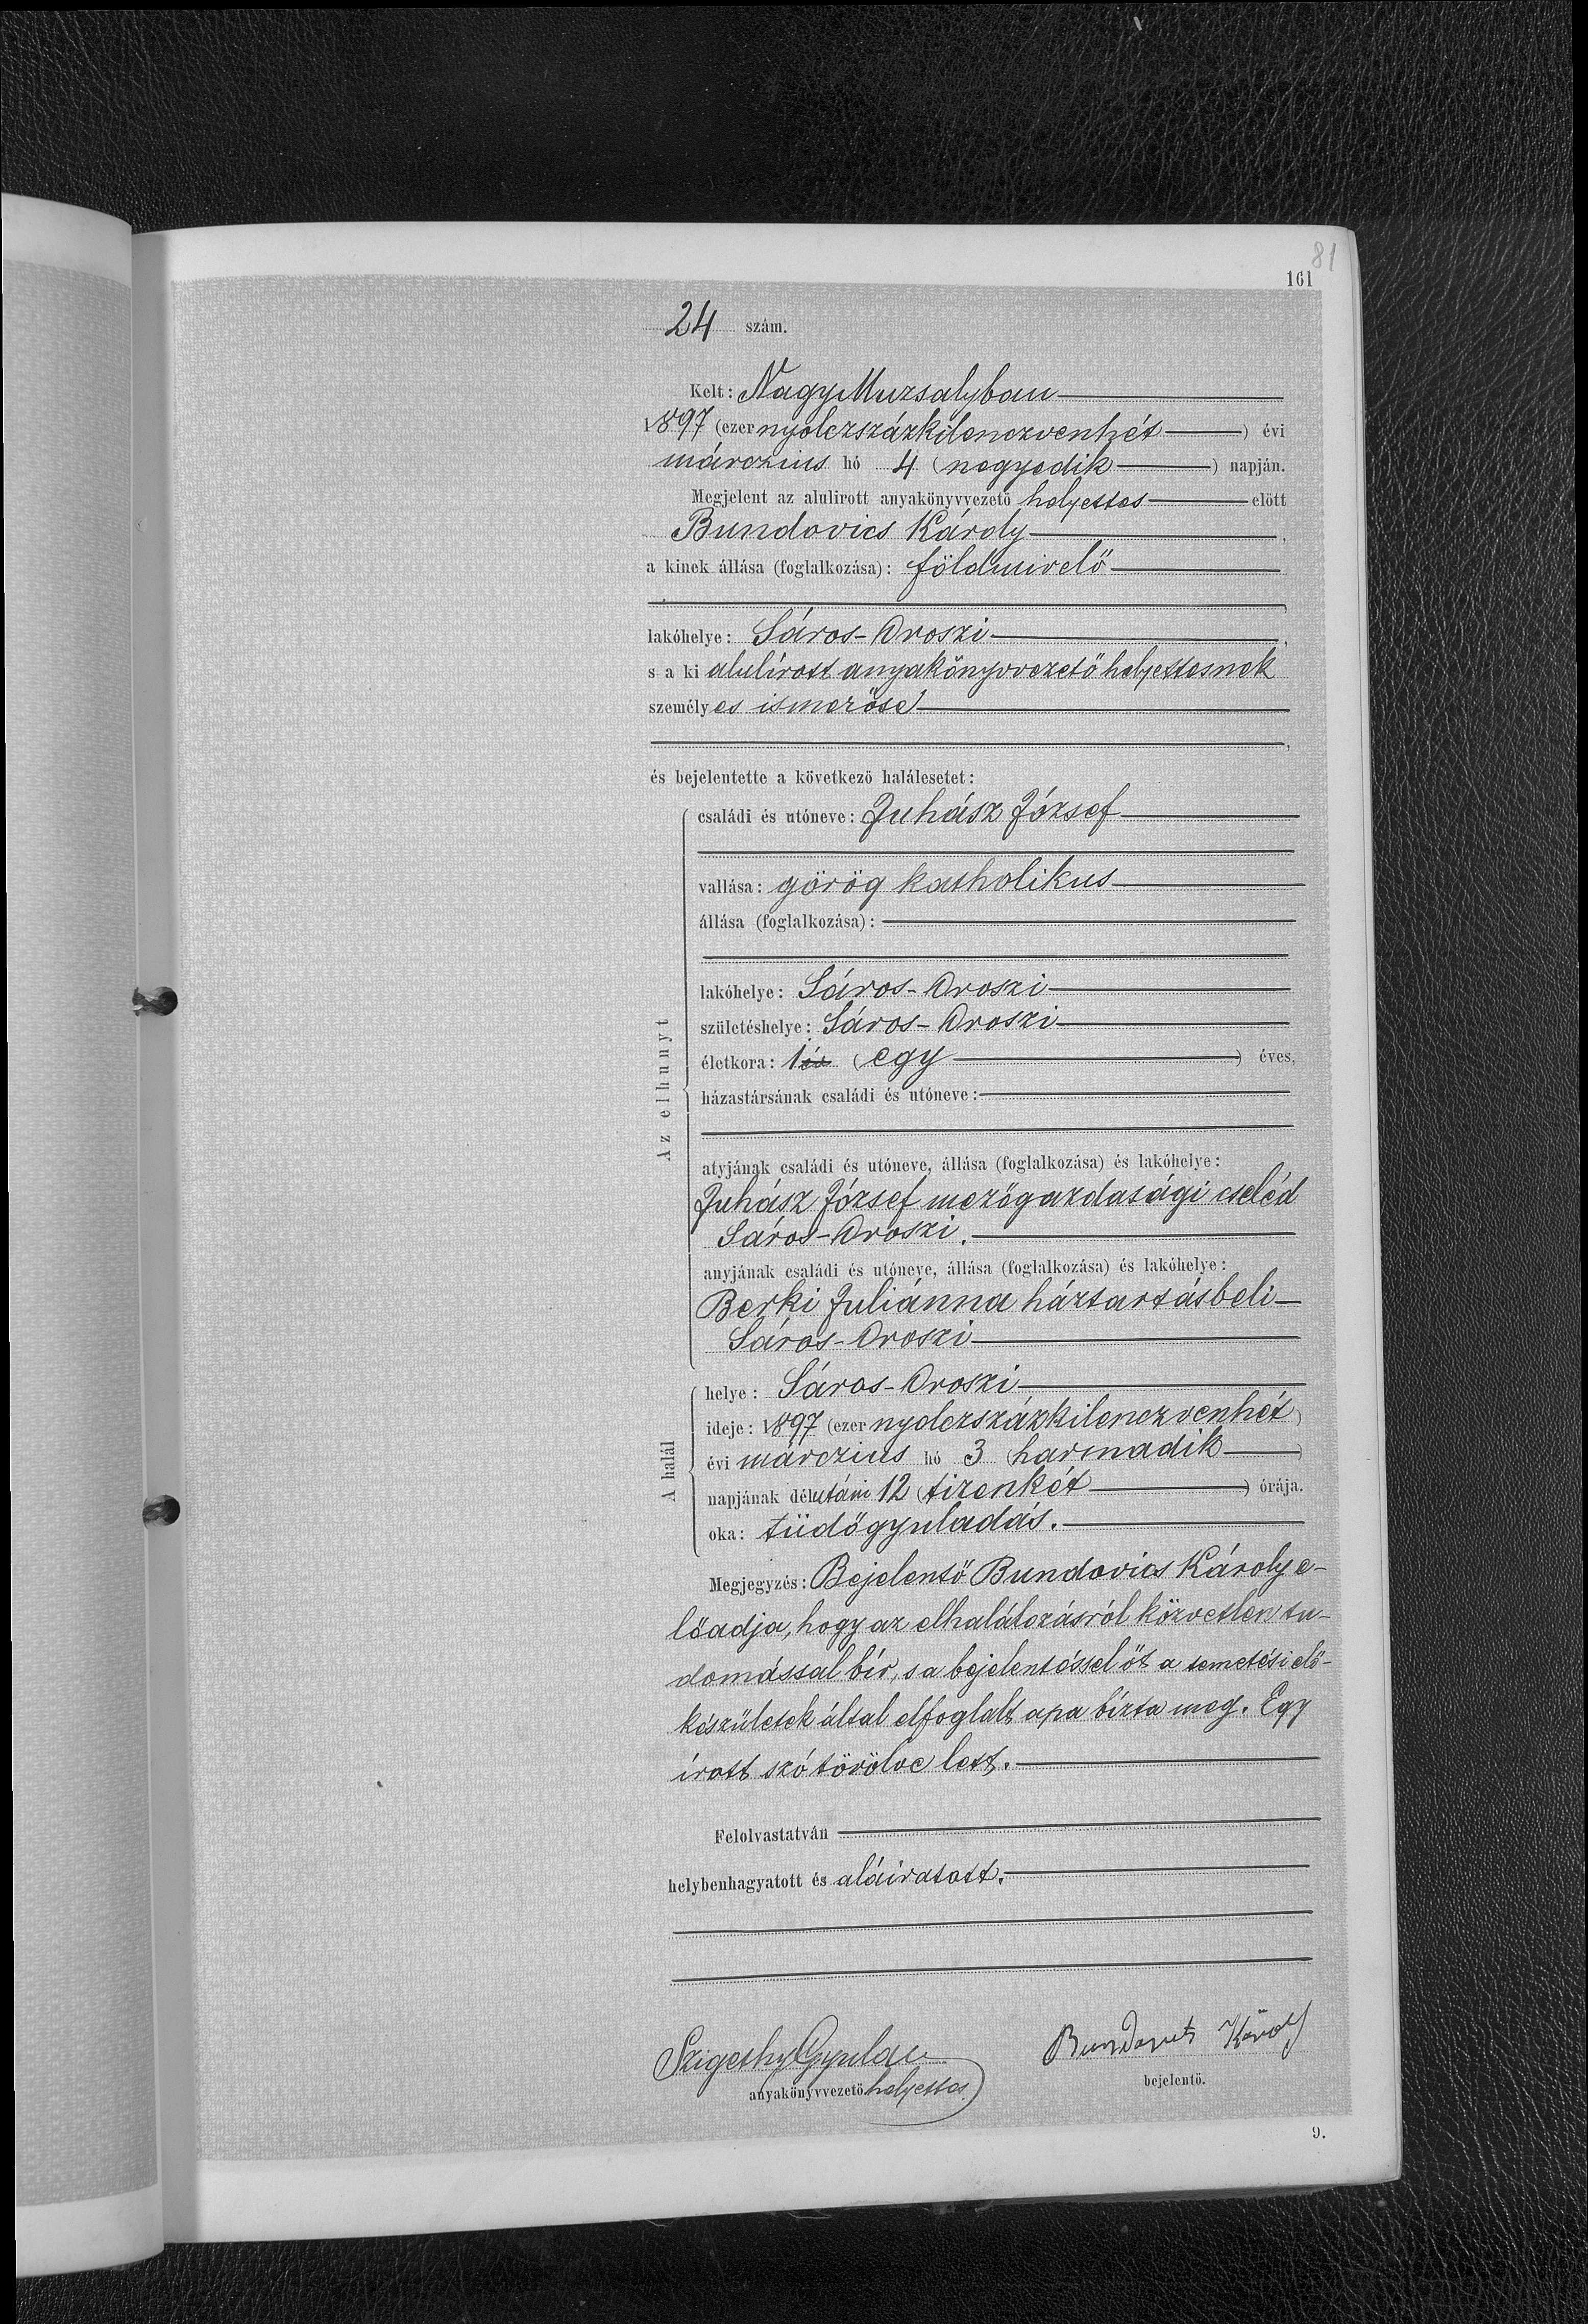 81
161
24 szám.
Kelt: NagyMuzsalyban
1897 (ezer nyolczszázkilenczvenhét) évi
márczius hó 4 (negyedik) napján.
Megjelent az alulirott anyakönyvvezető helyettes előtt
Bundovics Károly,
a kinek állása (foglalkozása): földmivelő
lakóhelye: Sáros-Oroszi,
s a ki alulírott anyakönyvvezető helyettesnek
személyes ismerőse
,
és bejelentette a következő halálesetet:
Az elhunyt
családi és utóneve: Juhász József
vallása: görög katholikus
állása (foglalkozása):
lakóhelye: Sáros-Oroszi
születéshelye: Sáros-Oroszi
életkora: 1 (egy) éves,
házastársának családi és utóneve:
atyjának családi és utóneve, állása (foglalkozása) és lakóhelye:
Juhász József mezőgazdasági cseléd
Sáros-Oroszi.
anyjának családi és utóneve, állása (foglalkozása) és lakóhelye:
Berki Juliánna háztartásbeli
Sáros-Oroszi
A halál
helye: Sáros-Oroszi
ideje: 1897 (ezer nyolczszázkilenczvenhét)
évi márczius hó 3 (harmadik)
napjának délutáni 12 (tizenkét) órája.
oka: tüdőgyuladás.
Megjegyzés: Bejelentő Bundovics Károly e-
lőadja, hogy az elhalálozásról közvetlen tu-
domással bír, s a bejelentéssel őt a temetési elő-
készületek által elfoglalt apa bízta meg. Egy
írott szó törölve lett.
Felolvastatván
helybenhagyatott és aláiratott.
Szigethy Gyula
anyakönyvvezető helyettes
Károly
bejelentő.
9.